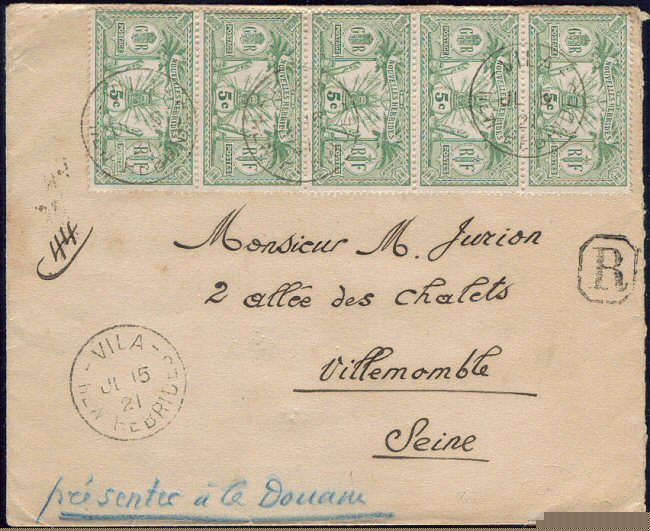 GR GR GR GR GR
POSTAGE POSTAGE POSTAGE POSTAGE POSTAGE
NOUVELLES HEBRIDES NOUVELLES HEBRIDES NOUVELLES HEBRIDES NOUVELLES HEBRIDES NOUVELLES HEBRIDES
5c 5c 5c 5c 5c
RF RF RF RF RF
POSTES POSTES POSTES POSTES POSTES
VILA
44
Monsieur M. Jurion
R
2 allée des chalets
Villemomble
Seine
- VILA -
JL 15
21
NEW HEBRIDES
présenter à la Douane